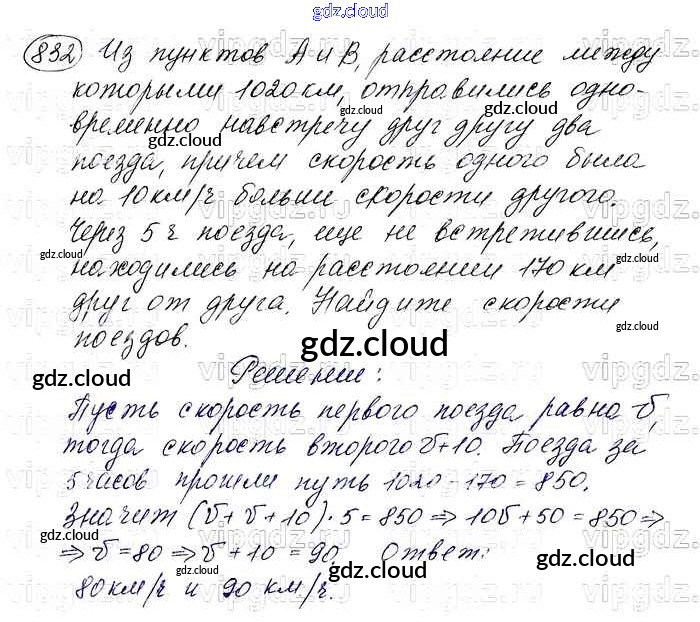 gdz.cloud
832 Из пунктов А и В, расстояние между
которыми 1020 км, отправились одно-
временно навстречу друг другу два
поезда, причем скорость одного была
на 10 км/ч больше скорости другого.
Через 5 ч поезда, еще не встретившись,
находились на расстоянии 170 км
друг от друга. Найдите скорости
поездов.
gdz.cloud
Решение:
Пусть скорость первого поезда равна v,
тогда скорость второго v+10. Поезда за
5 часов прошли путь 1020-170=850,
значит (v+v+10)·5=850 ⇒ 10v+50=850 ⇒
⇒ v=80 ⇒ v+10=90. Ответ:
80 км/ч и 90 км/ч.